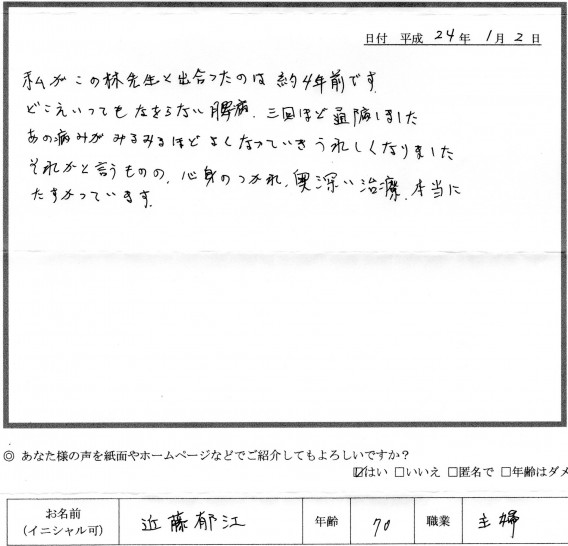 日付 平成 24年 1月 2日
私がこの林先生と出合つたのは約4年前です
どこえいってもなをらない腰痛、三回ほど通院しました
あの痛みがみるみるほどよくなっていきうれしくなりました
それからと言うものの、心身のつかれ、奥深い治療、本当に
たすかっています。
◎ あなた様の声を紙面やホームページなどでご紹介してもよろしいですか?
☑はい □いいえ □匿名で □年齢はダメ
お名前 近藤郁江 年齢 70 職業 主婦
(イニシャル可)